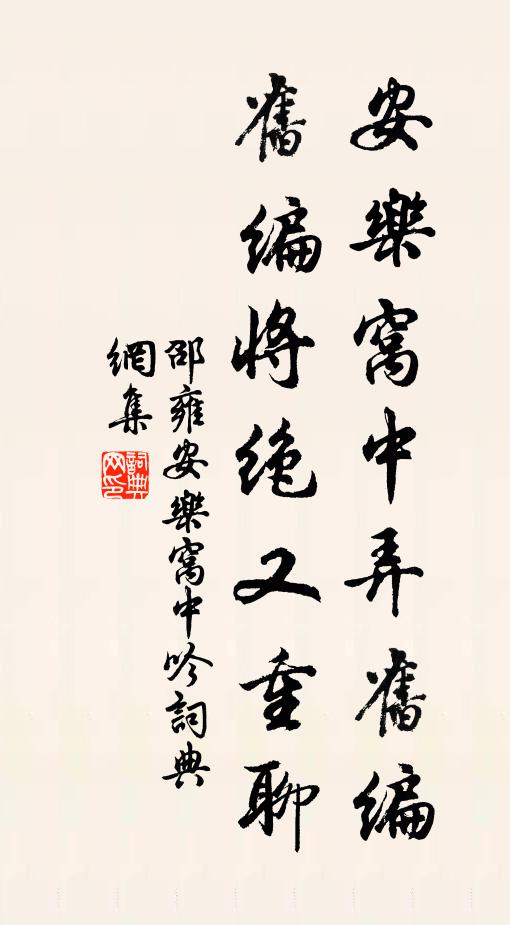 安樂窩中弄舊編
舊編將絶又重聊
邵雍安樂窩中吟詞典
網集
詞典網印